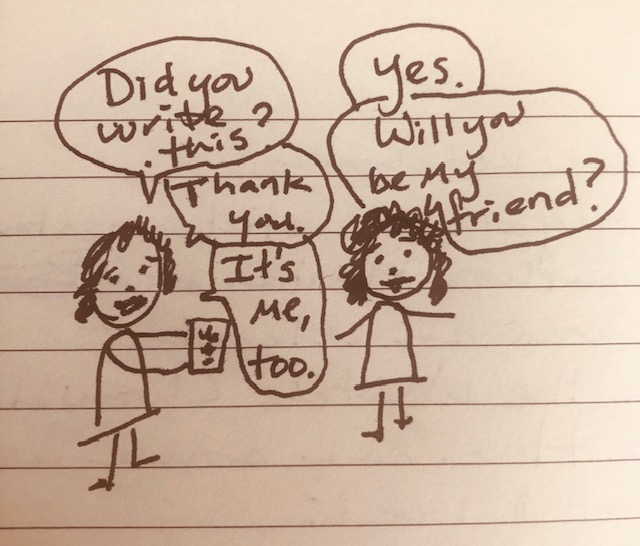 Did you
write
this?
Yes.
Will you
be my
friend?
Thank
you.
It's
me,
too.